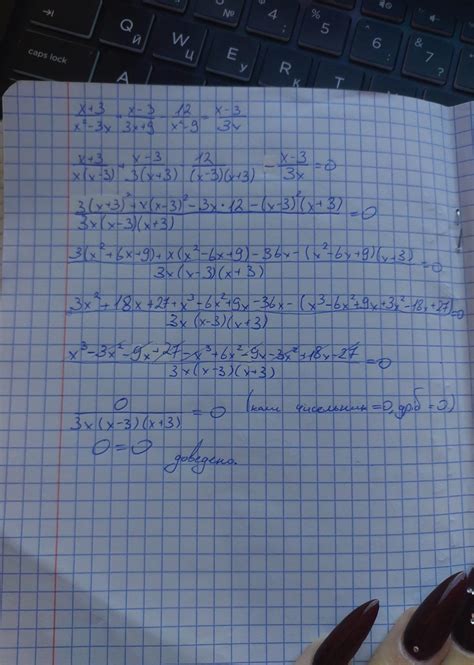 caps lock
Q Й
W Ц
E У
A
3 №
4
5
6
7
(x+3)/(x²-3x) + (x-3)/(3x+9) - 12/(x²-9) = (x-3)/3x
(x+3)/(x(x-3)) + (x-3)/(3(x+3)) 12/((x-3)(x+3)) - (x-3)/3x = 0
(3(x+3)² + x(x-3)² - 3x·12 - (x-3)²(x+3))/(3x(x-3)(x+3)) = 0
(3(x²+6x+9) + x(x²-6x+9) - 36x - (x²-6x+9)(x+3))/(3x(x-3)(x+3)) = 0
(3x² + 18x + 27 + x³ - 6x² + 9x - 36x - (x³-6x²+9x+3x²-18x+27))/(3x(x-3)(x+3)) = 0
(x³ - 3x² - 9x + 27 - x³ + 6x² - 9x - 3x² + 18x - 27)/(3x(x-3)(x+3)) = 0
0/(3x(x-3)(x+3)) = 0 ( чисельник = 0, др б = 0)
0 = 0 доведено.